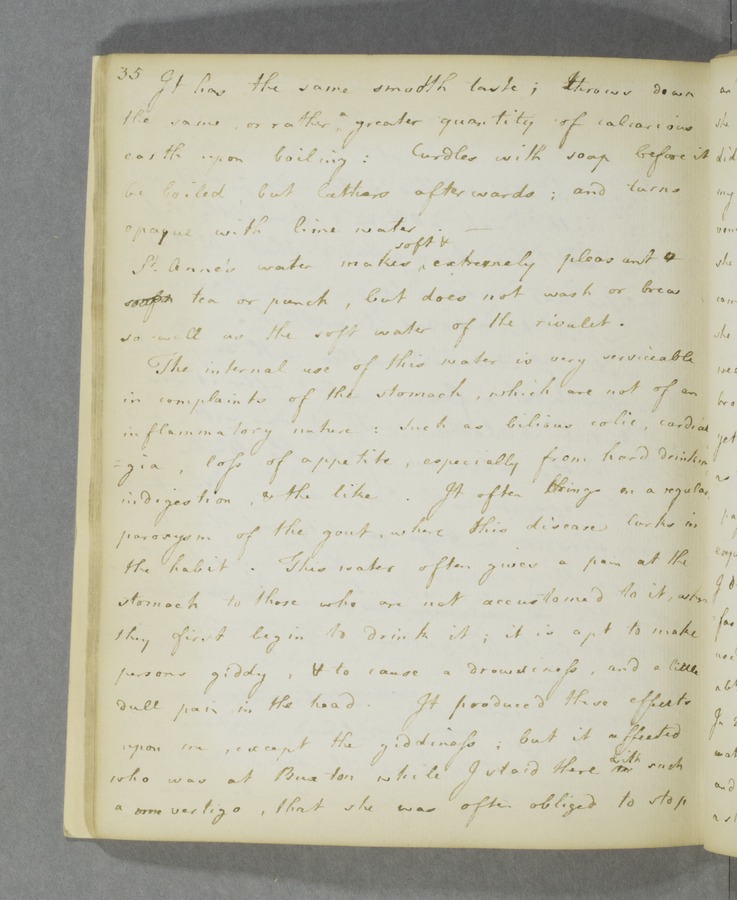 35 It has the same smooth taste; throws down
the same, or rather a greater quantity of calcarious
earth upon boiling: Curdles with soap before it
be boiled, but lathers afterwards; and turns
opaque with lime water. —
soft &
St. Anne's water makes extremely pleasant
tea or punch, but does not wash or brew
so well as the soft water of the rivulet.
The internal use of this water is very serviceable
in complaints of the stomach, which are not of an
inflammatory nature: Such as bilious colic, cardial
=gia, loss of appetite, especially from hard drinking
indigestion, & the like. It often brings on a regular
paroxysm of the gout, where this disease lurks in
the habit. This water often gives a pain at the
stomach to those who are not accustomed to it, when
they first begin to drink it; it is apt to make
persons giddy, & to cause a drowsiness, and a little
dull pain in the head. It produced these effects
upon me, except the giddiness; but it affected
who was at Buxton while I staid there with such
a vertigo, that she was often obliged to stop